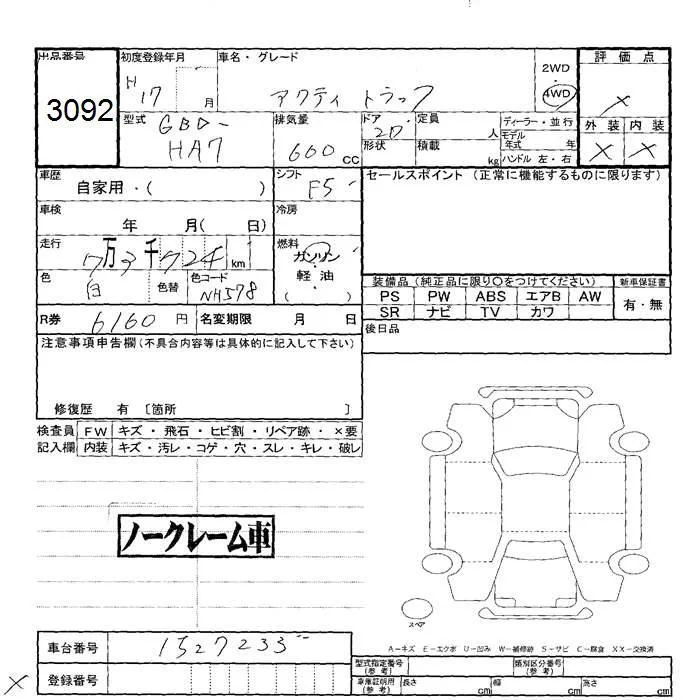 出品番号 初度登録年月 車名・グレード 2WD 評価点
3092 H17 月 アクティ トラック 4WD ×
型式 GBD- HA7 排気量 600 cc ドア 2D 形状 定員 人 積載 kg ディーラー・並行 モデル年式 年 ハンドル 左・右 外装 内装
× ×
車歴 自家用・( ) シフト F5 セールスポイント (正常に機能するものに限ります)
車検 年 月( 日) 冷房
走行 7万3千724km 燃料 ガソリン 軽油 ( )
色 白 色替 色コード NH578 装備品 (純正品に限り○をつけてください) 新車保証書
PS PW ABS エアB AW 有・無
SR ナビ TV カワ
R券 6160円 名変期限 月 日 後日品
注意事項申告欄(不具合内容等は具体的に記入して下さい)
修復歴 有 〔箇所 〕
検査員 FW キズ・飛石・ヒビ割・リペア跡・×要
記入欄 内装 キズ・汚レ・コゲ・穴・スレ・キレ・破レ
ノークレーム車
スペア
A-キズ E-エクボ U-凹み W-補修跡 S-サビ C-腐食 XX-交換済
車台番号 1527233 型式指定番号 (参考) 類別区分番号 (参考)
× 登録番号 車庫証明用 (参考) 長さ cm 幅 cm 高さ cm